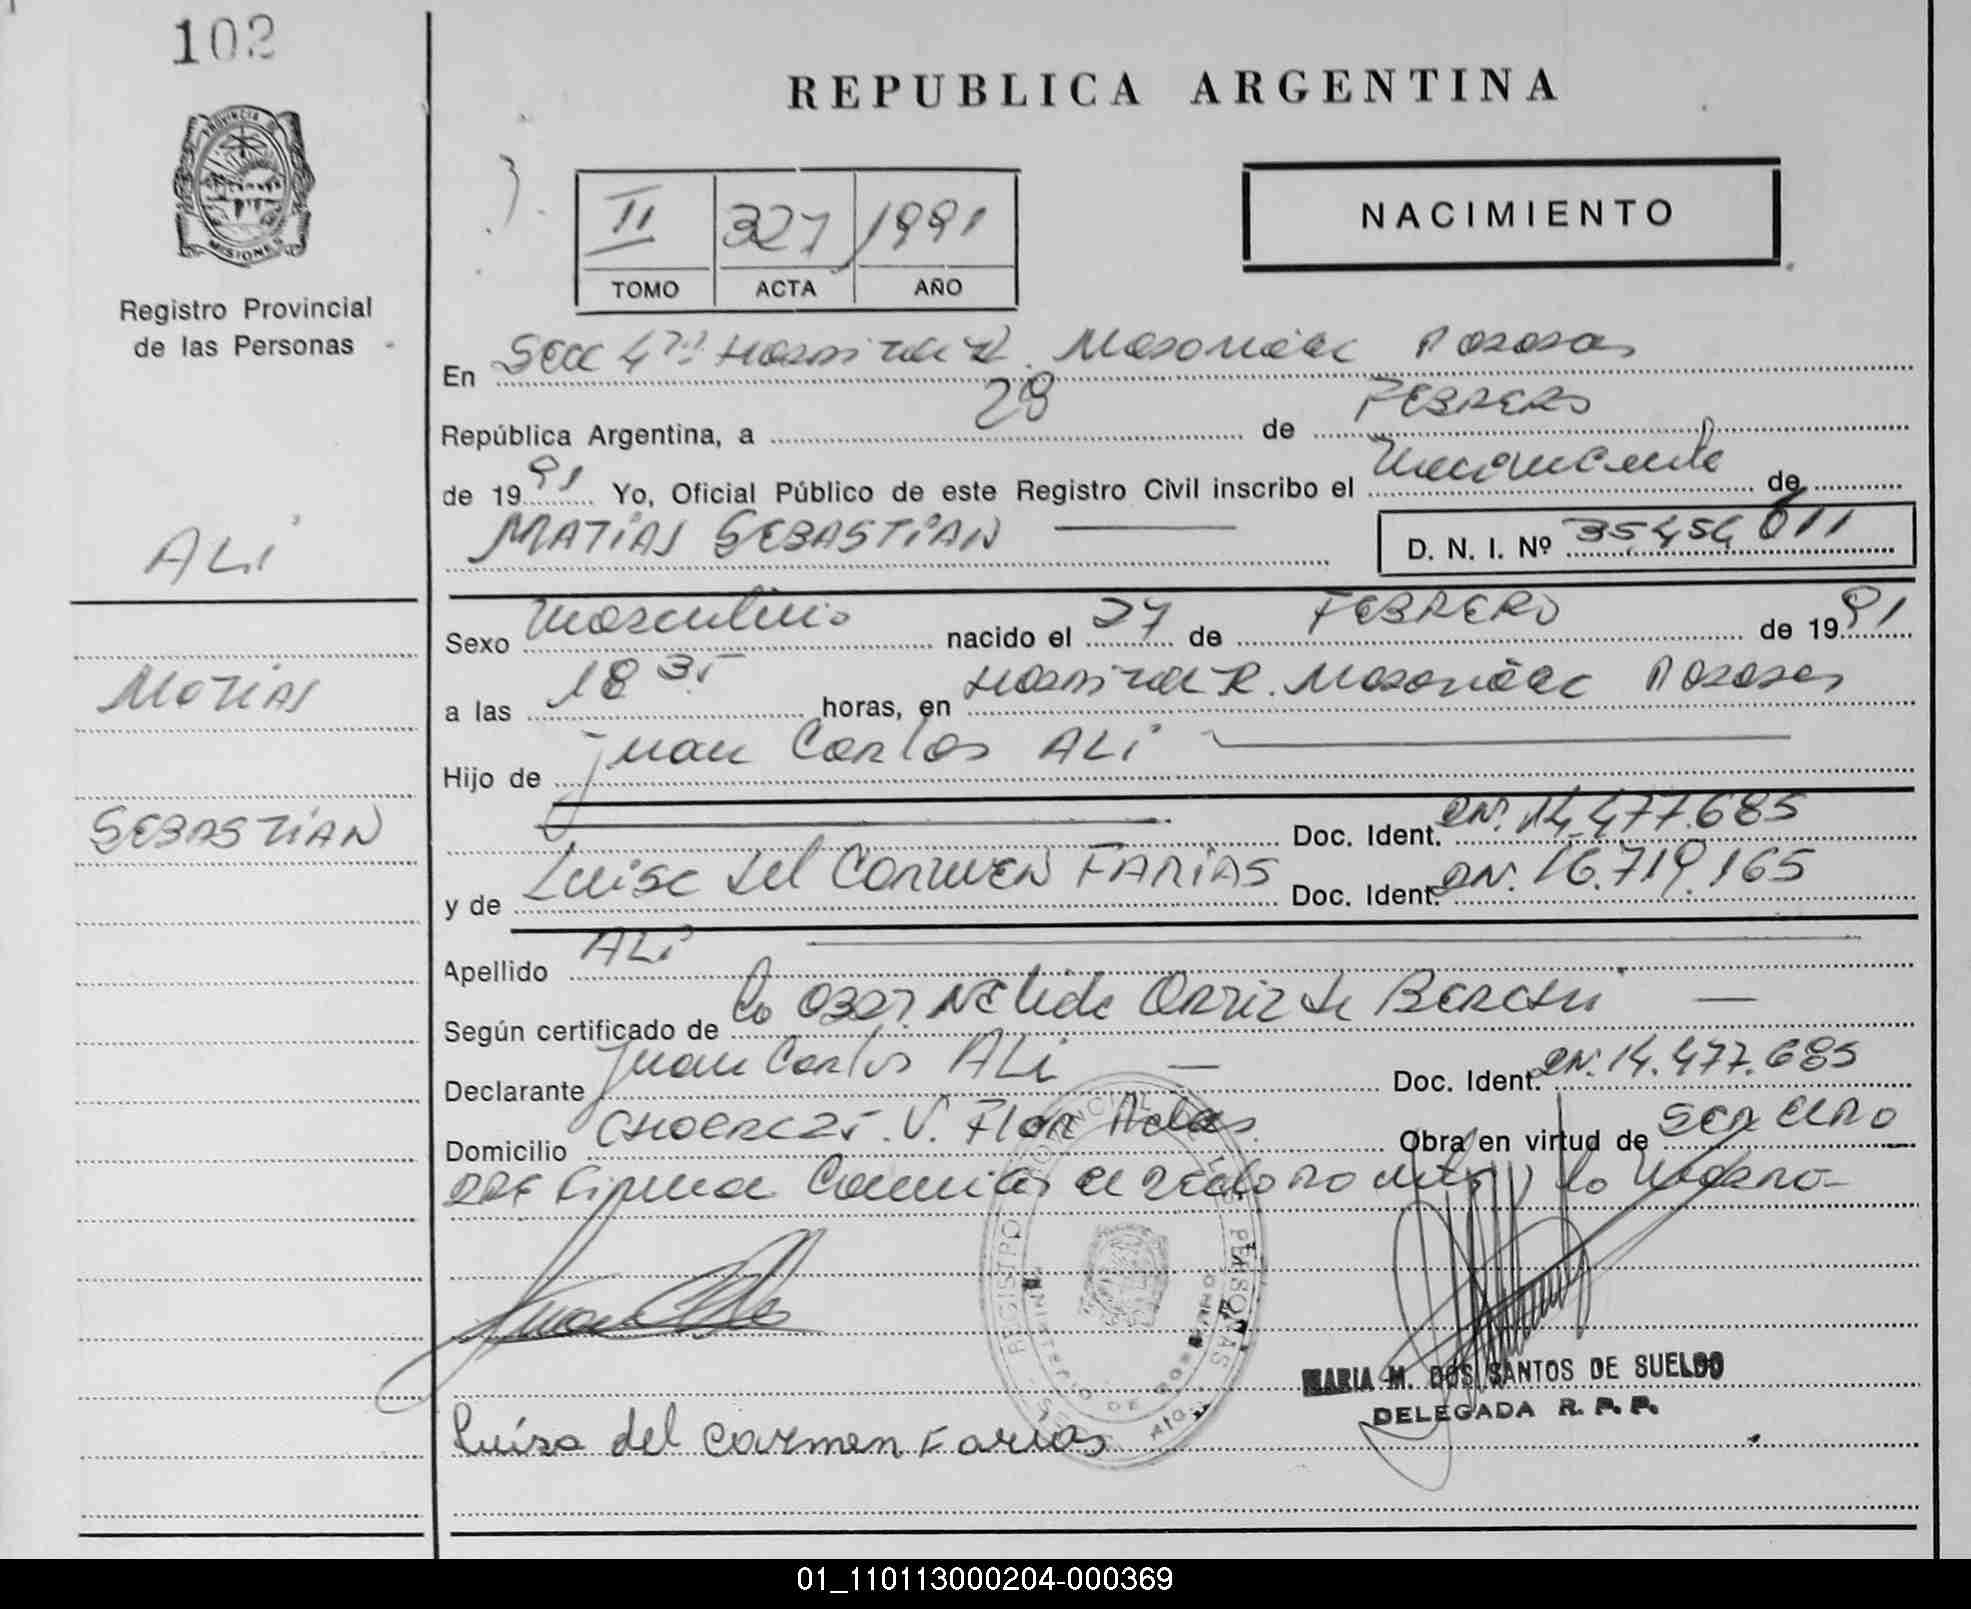 102
REPUBLICA ARGENTINA
PROVINCIA DE
MISIONES
Registro Provincial
de las Personas
NACIMIENTO
II 327 1991
TOMO ACTA AÑO
En Secc 4ta Hospital R. Madariaga Posadas
República Argentina, a 28 de FEBRERO
de 1991 Yo, Oficial Público de este Registro Civil inscribo el nacimiento de
MATIAS SEBASTIAN
D. N. I. Nº 35.454.611
ALI
MATIAS
SEBASTIAN
Sexo masculino nacido el 27 de FEBRERO de 1991
a las 18 35 horas, en Hospital R. Madariaga Posadas
Hijo de Juan Carlos ALI
Doc. Ident. DN. 14.477.685
y de Luisa del Carmen FARIAS Doc. Ident. DN. 16.719.165
Apellido ALI
Según certificado de la Obst. Nelida Ortiz de
Declarante Juan Carlos ALI Doc. Ident. DN. 14.477.685
Domicilio V. Flor Pdas. Obra en virtud de ser el pa
dre Firma el la madre
REGISTRO PROVINCIAL DE LAS PERSONAS
MINISTERIO DE GOBIERNO
MARIA M. DOS SANTOS DE SUELDO
DELEGADA R. P. P.
Luisa del Carmen Farias
01_110113000204-000369